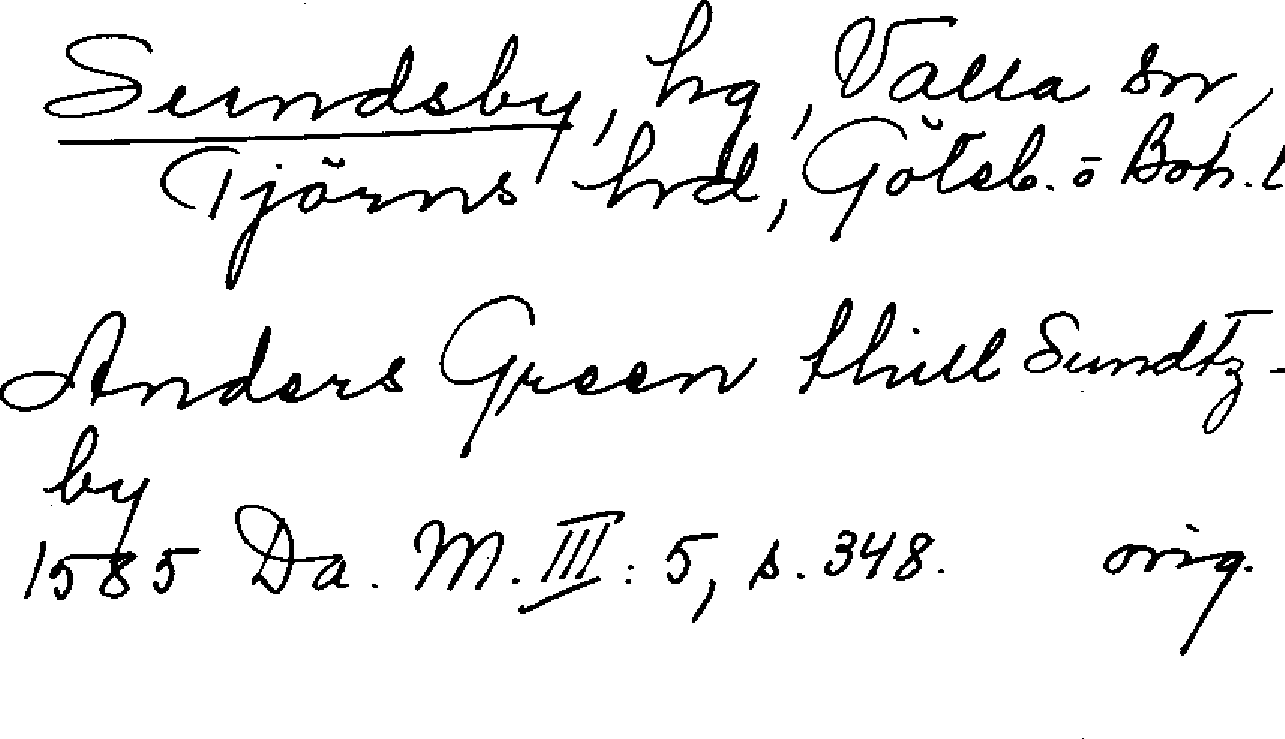 Sundsby, hg, Valla sn,
Tjörns hd, Göteb. o Boh. l
Anders Green thill Sundtz-
by
1585 Da. M. III: 5, s. 348. orig.